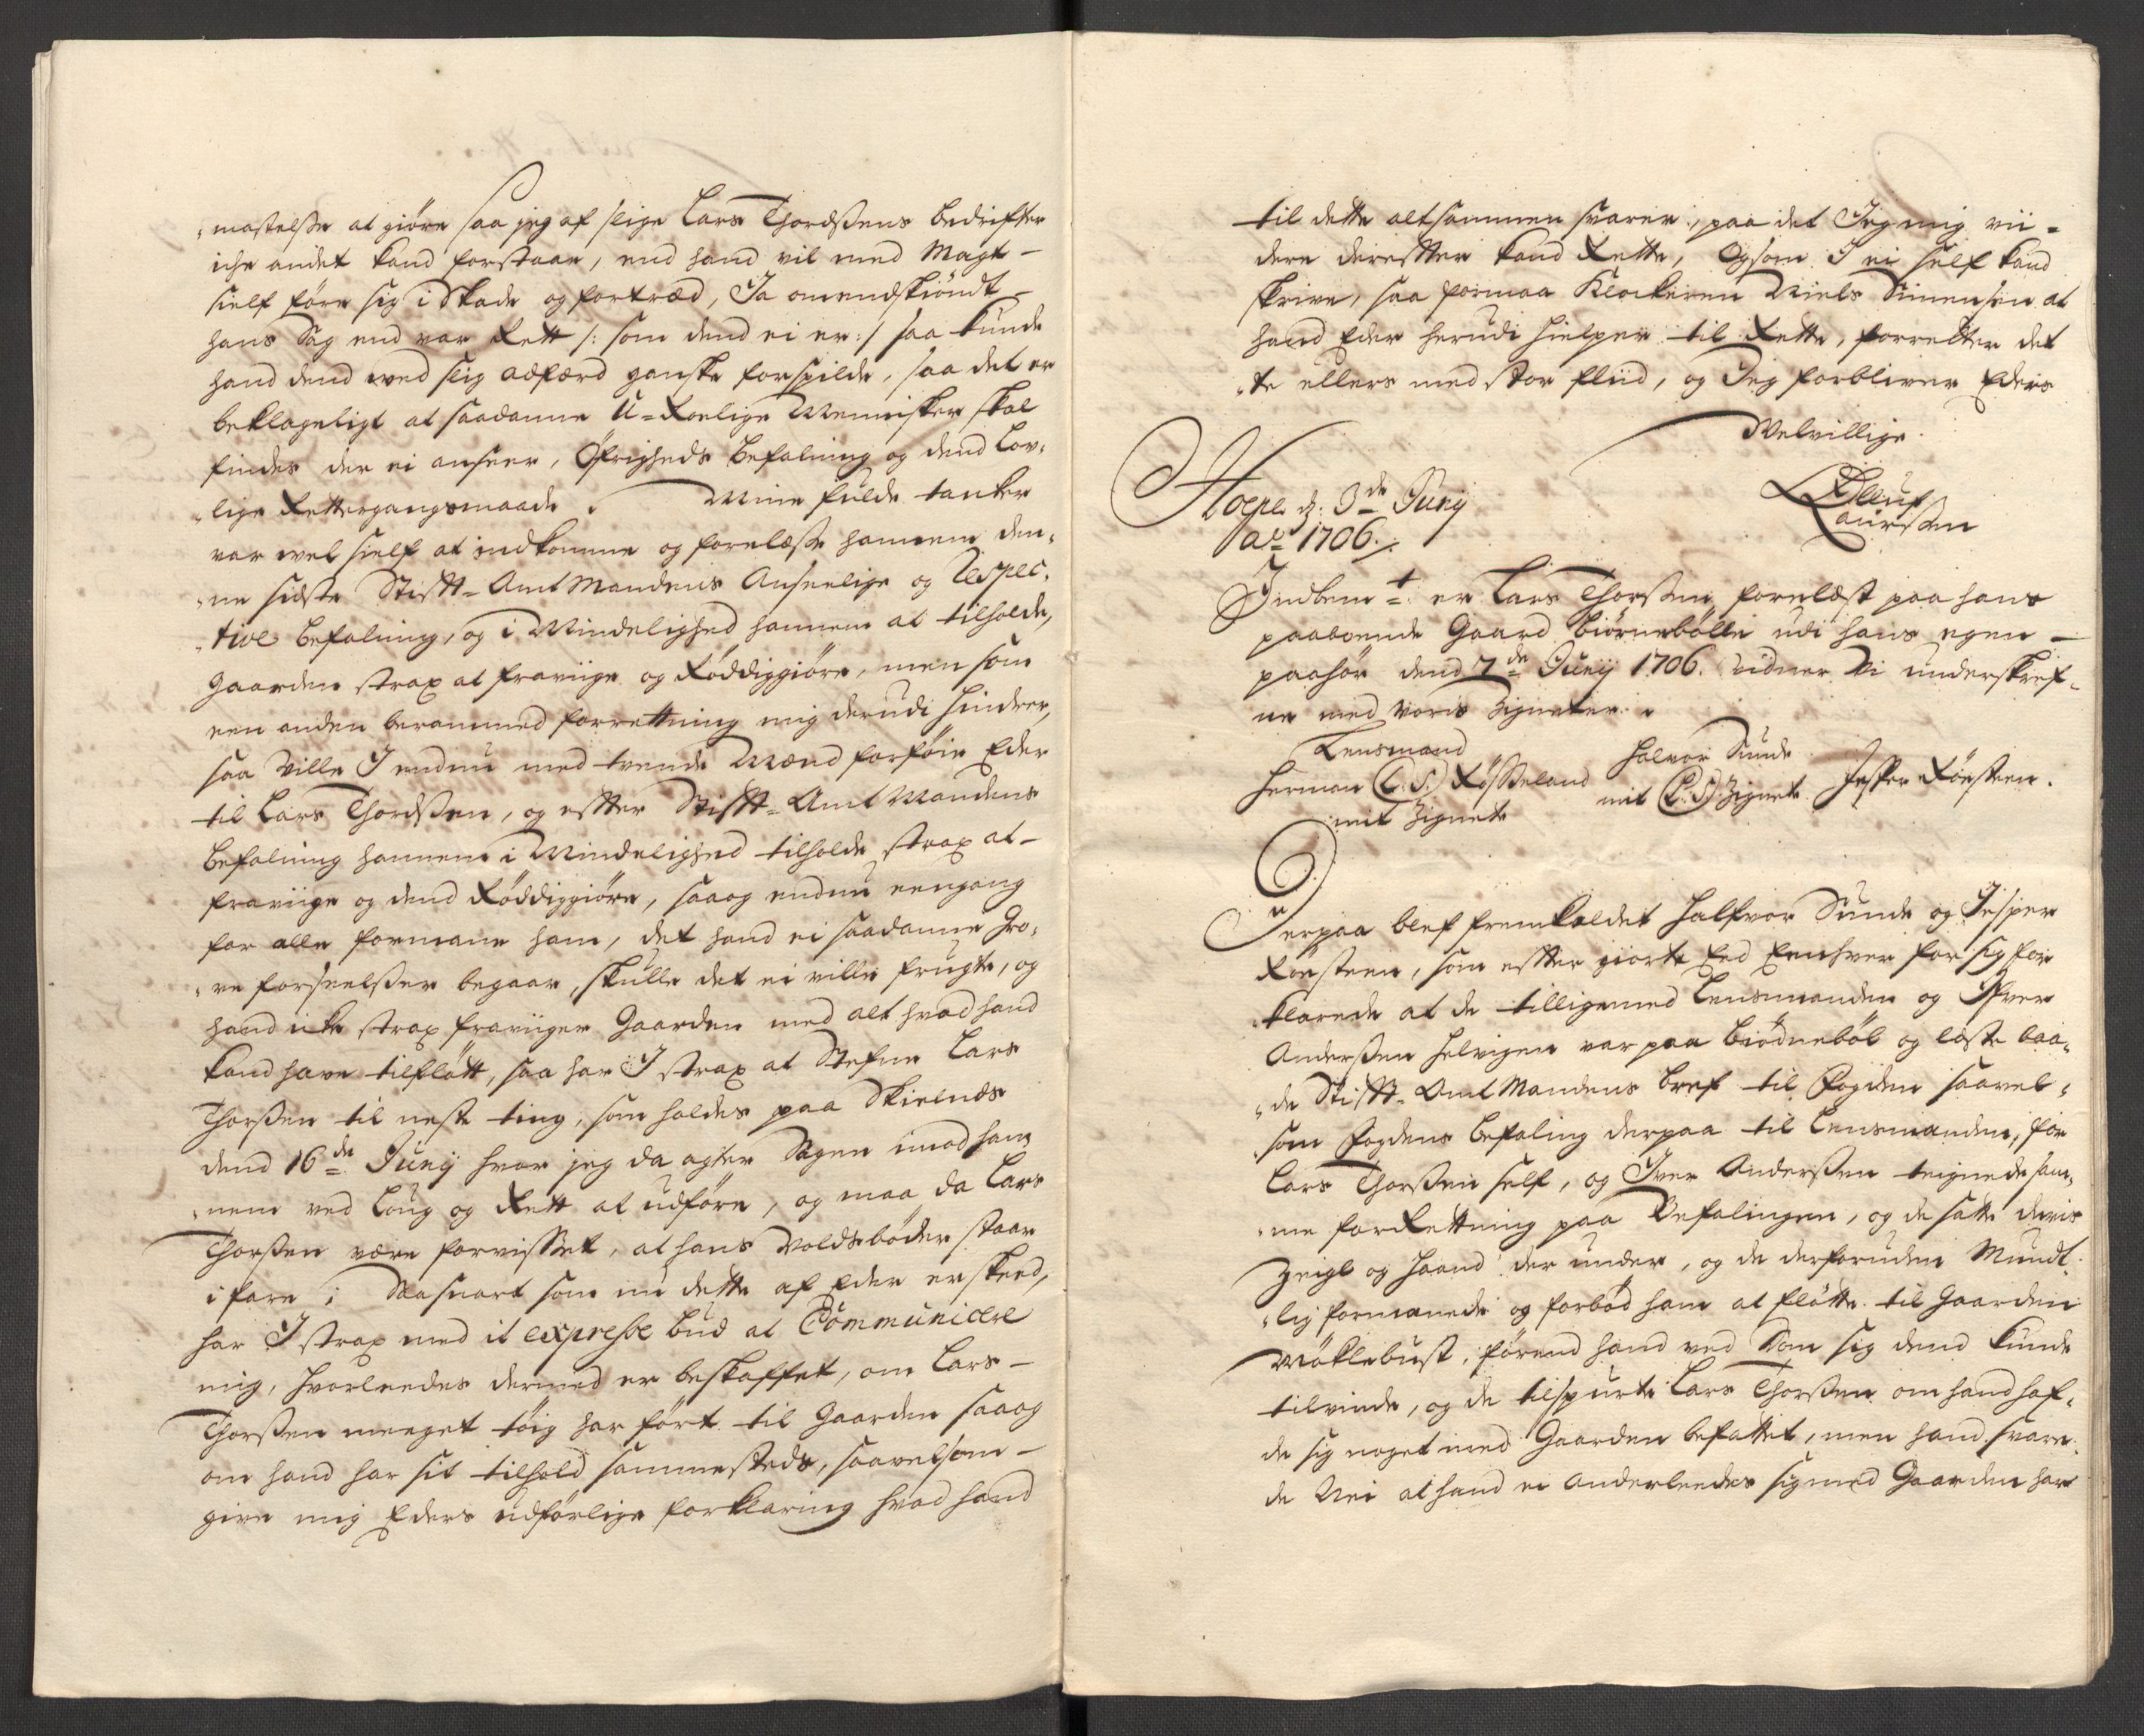 „mastelsse at giöre saa jeg af slige Lars Thordssens bedrifter
iche andet kand forstaae, end hand vil med Magt –
sielf före sig i Skade og fortræd, Ja omendskiöndt –
hans Sag end var Rett /: som dend ei er :/ saa kunde
hand dend wed slig adfærd ganske forspilde, saa det er
beklageligt at saadanne U=Roelige Mennisker skal
findes der ei anseer, Öfrigheds befalning og dend Lov„
„lige Rettergangsmaade. Mine fulde tanker
var wel sielf at indkomme og forelæsse hannem den„
„ne sidste Stifft-Amt Mandens Anseelige og Respec„
„tive befalning, og i Mindelighed hannem at tilholde,
gaarden strax at fraviige og Röddiggiöre, men som
een anden berammed forrettning mig derudi hindrer,
saa Ville I endnu med tvende Mænd forföie Eder
til Lars Thordssen, og effter Stifft-Amt Mandens
befalning hannem i Mindelighed tilholde strax at –
fraviige og dend Röddiggiöre, saa og endnu eengang
for alle formane ham, det hand ei saadanne Gro„
„ve forseelsser begaar, skulle det ei ville frugte, og
hand icke strax fraviiger Gaarden med alt hvad hand
kand have tilflött, saa har I strax at Stefne Lars
Thorssen til neste ting, som holdes paa Skielnæs
dend 16de Junij hvor jeg da agter Sagen imod han
„nem ved Loug og Rett at udföre, og maa da Lars
Thorssen være forvisset, at hans Voldsböder staar
i fare; Saasnart som nu dette af Eder er skeed,
har I strax med it expresse bud at Communicere
mig, hvorleedes dermed er beskaffet, om Lars –
Thorssen meeget töig har fört til Gaarden saa og
om hand har sit tilhold sammesteds, saavelsom –
give mig Eders udförlige forklaring hvad hand
til dette altsammen svarer, paa det Jeg mig vii=
dere dereffter kand Rette, Og som I ei self kand
skrive, saa formaa Klockeren Niels Simensen at
hand Eder herudi hielper til Rette, forretter det
„te ellers med stor fliid, og Jeg forbliver Eders
Welvillige
Oluf
Laurssen
Hope d: 3de Junij
ao 1706./.
Indbemt er Lars Thorssen forelæst paa hans
paaboende Gaard Biörnebölle udi hans egen –
paahör dend 7de Junij 1706. Vidner Vi underskref„
ne med Voris Zigneter.
Lensmand
Herman (L. S.) Rösseland
mit Zignete
Halvor Sunde
mit (L. S.) Zignete
Jesper Röesteen.
Derpaa blef fremkaldet Halfvor Sunde og Jesper
Röesteen, som effter giorte Eed Eenhver for sig for
klarede at de tilligemed Lensmanden og Ifver
Anderssen Helvigen var paa Biödneböl og læste baa„
„de Stifft-Amt Mandens bref til Fogden saavel„
som Fogdens befaling derpaa til Lensmanden, for
Lars Thorssen self, og Iver Anderssen teignede sam„
„me forRettning paa Befalingen, og de satte deris
Zeigl og haand der under, og de derforuden Mundt„
„lig formanede og forböd ham at flötte til Gaarden
Möklebust, förend hand ved Dom sig dend kunde
tilvinde, og de tilspurte Lars Thorssen om hand haf„
de sig noget med Gaarden befattet, men hand svare„
de Nei at hand ei anderleedes sig med Gaarden har